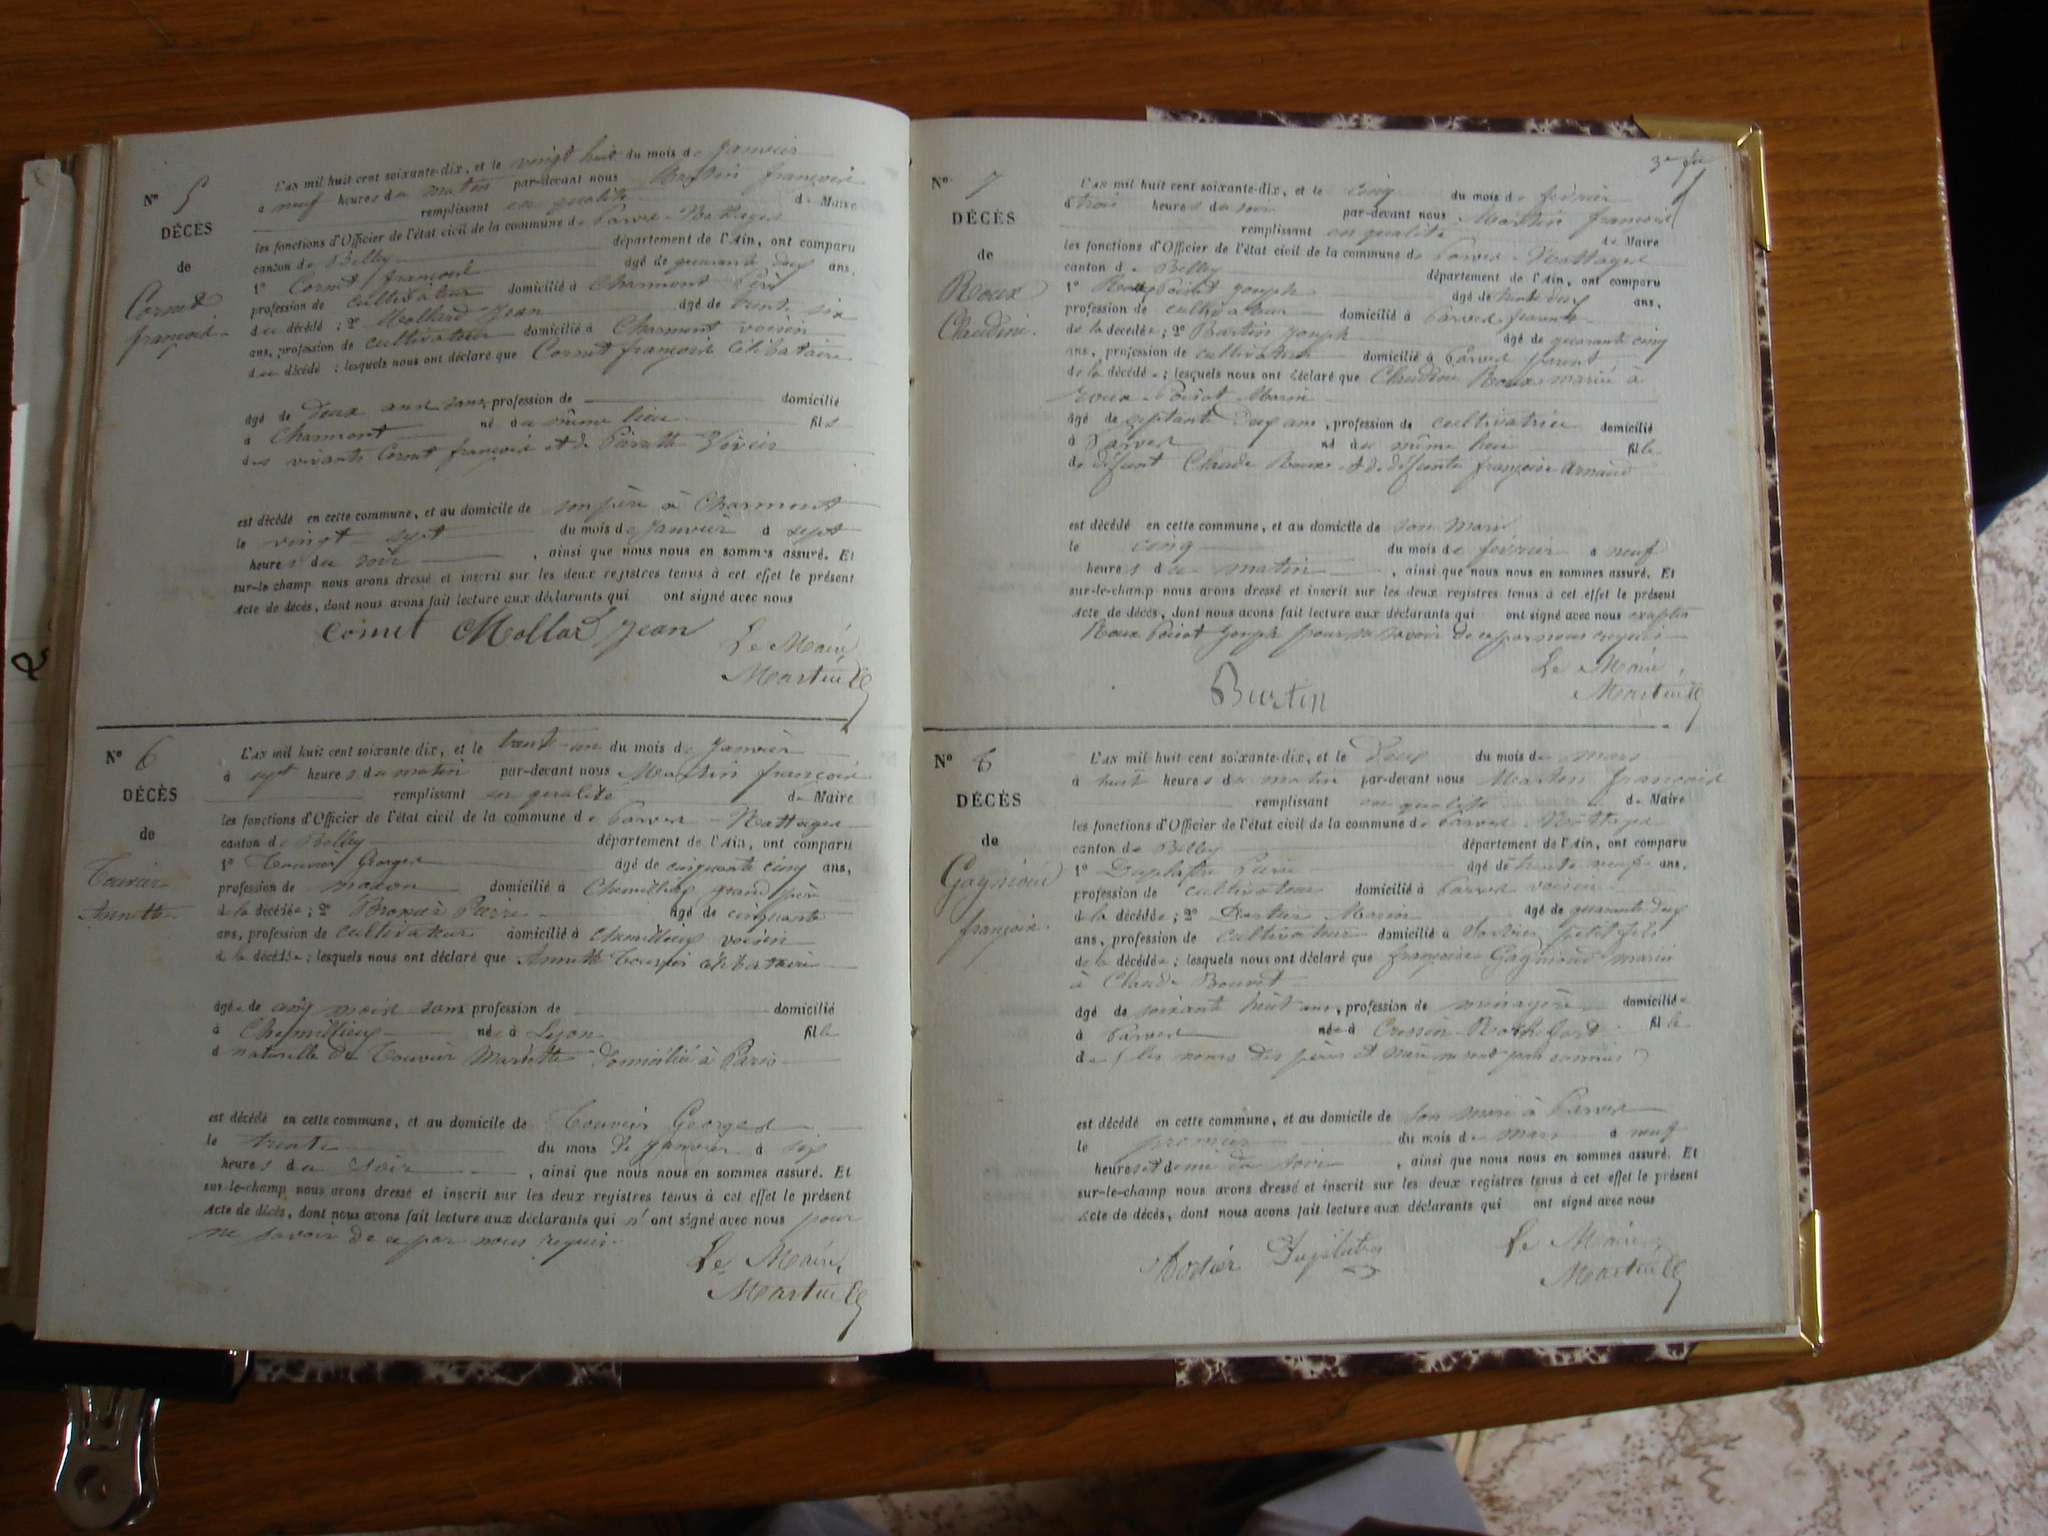 N° 5
DÉCÈS
de
Cornet
françois
L'AN mil huit cent soixante-dix, et le vingt huit du mois de Janvier
à neuf heures du matin par-devant nous Martin françois
remplissant en qualité de Maire
les fonctions d'Officier de l'état civil de la commune de Parves-Nattages
canton de Belley département de l'Ain, ont comparu
1° Cornet françois âgé de quarante deux ans,
profession de cultivateur domicilié à Charmont père
du décédé ; 2° Mollard Jean âgé de trente six
ans, profession de cultivateur domicilié à Charmont voisin
du décédé ; lesquels nous ont déclaré que Cornet françois célibataire
âgé de deux ans sans profession de domicilié
à Charmont né au même lieu fils
des vivants Cornet françois et de
est décédé en cette commune, et au domicile de son père à Charmont
le vingt sept du mois de Janvier à sept
heures du soir , ainsi que nous nous en sommes assuré. Et
sur-le champ nous avons dressé et inscrit sur les deux registres tenus à cet effet le présent
acte de décès, dont nous avons fait lecture aux déclarants qui ont signé avec nous
Cornet Mollard Jean
Le Maire,
Martin
N° 6
DÉCÈS
de
Annette
L'AN mil huit cent soixante-dix, et le trente-un du mois de Janvier
à sept heures du matin par-devant nous Martin françois
remplissant en qualité de Maire
les fonctions d'Officier de l'état civil de la commune de Parves-Nattages
canton de Belley département de l'Ain, ont comparu
1° Georges âgé de cinquante cinq ans,
profession de maçon domicilié à Chemillieu grand père
de la décédée ; 2° Pierre âgé de cinquante
ans, profession de cultivateur domicilié à Chemillieu voisin
de la décédée ; lesquels nous ont déclaré que Annette célibataire
âgée de cinq mois sans profession de domicilié
à Chemillieu née à Lyon fille
naturelle de Mariette domiciliée à Paris
est décédé en cette commune, et au domicile de Georges
le trente du mois de Janvier à six
heures du soir , ainsi que nous nous en sommes assuré. Et
sur-le-champ nous avons dressé et inscrit sur les deux registres tenus à cet effet le présent
acte de décès, dont nous avons fait lecture aux déclarants qui n'ont signé avec nous pour
ne savoir de ce par nous requis.
Le Maire,
Martin
N° 7
DÉCÈS
de
Roux
Claudine
L'AN mil huit cent soixante-dix, et le cinq du mois de février
à trois heures du soir par-devant nous Martin françois
remplissant en qualité de Maire
les fonctions d'Officier de l'état civil de la commune de Parves-Nattages
canton de Belley département de l'Ain, ont comparu
1° Roux Poirot Joseph âgé de trente deux ans,
profession de cultivateur domicilié à Parves
de la décédée ; 2° Burtin Joseph âgé de quarante cinq
ans, profession de cultivateur domicilié à Parves parent
de la décédée ; lesquels nous ont déclaré que Claudine Roux mariée à
Roux Poirot Marin
âgé de septante deux ans, profession de cultivatrice domicilié
à Parves né au même lieu fille
de défunt Claude Roux et de défunte françoise Arnaud
est décédé en cette commune, et au domicile de son mari
le cinq du mois de février à neuf
heures du matin , ainsi que nous nous en sommes assuré. Et
sur-le-champ nous avons dressé et inscrit sur les deux registres tenus à cet effet le présent
acte de décès, dont nous avons fait lecture aux déclarants qui ont signé avec nous excepté
Roux Poirot Joseph pour ne savoir de ce par nous requis
Le Maire,
Burtin Martin
N° 8
DÉCÈS
de
françoise
L'AN mil huit cent soixante-dix, et le deux du mois de mars
à huit heures du matin par-devant nous Martin françois
remplissant en qualité de Maire
les fonctions d'Officier de l'état civil de la commune de Parves-Nattages
canton de Belley département de l'Ain, ont comparu
1° Pierre âgé de trente neuf ans,
profession de cultivateur domicilié à Parves voisin
de la décédée ; 2° Marin âgé de quarante deux
ans, profession de cultivateur domicilié à petit fils
de la décédée ; lesquels nous ont déclaré que françoise mariée
à Claude
âgé de soixante huit ans, profession de ménagère domiciliée
à Parves née à Cressin-Rochefort fille
de (les noms des père et mère ne sont pas connus)
est décédé en cette commune, et au domicile de son mari à Parves
le premier du mois de mars à neuf
heures et demie du soir , ainsi que nous nous en sommes assuré. Et
sur-le-champ nous avons dressé et inscrit sur les deux registres tenus à cet effet le présent
acte de décès, dont nous avons fait lecture aux déclarants qui ont signé avec nous
Le Maire,
Martin